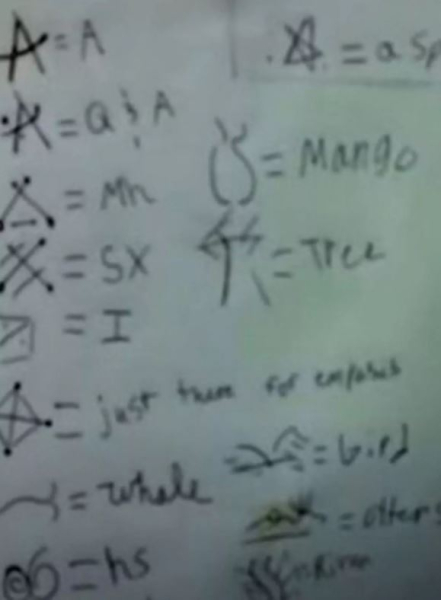 A = A
= a sp
A = Q & A
= Mango
= Mn
= SX
= Tree
= I
= just there for emphasis
= whale
= bird
= otters
= hs